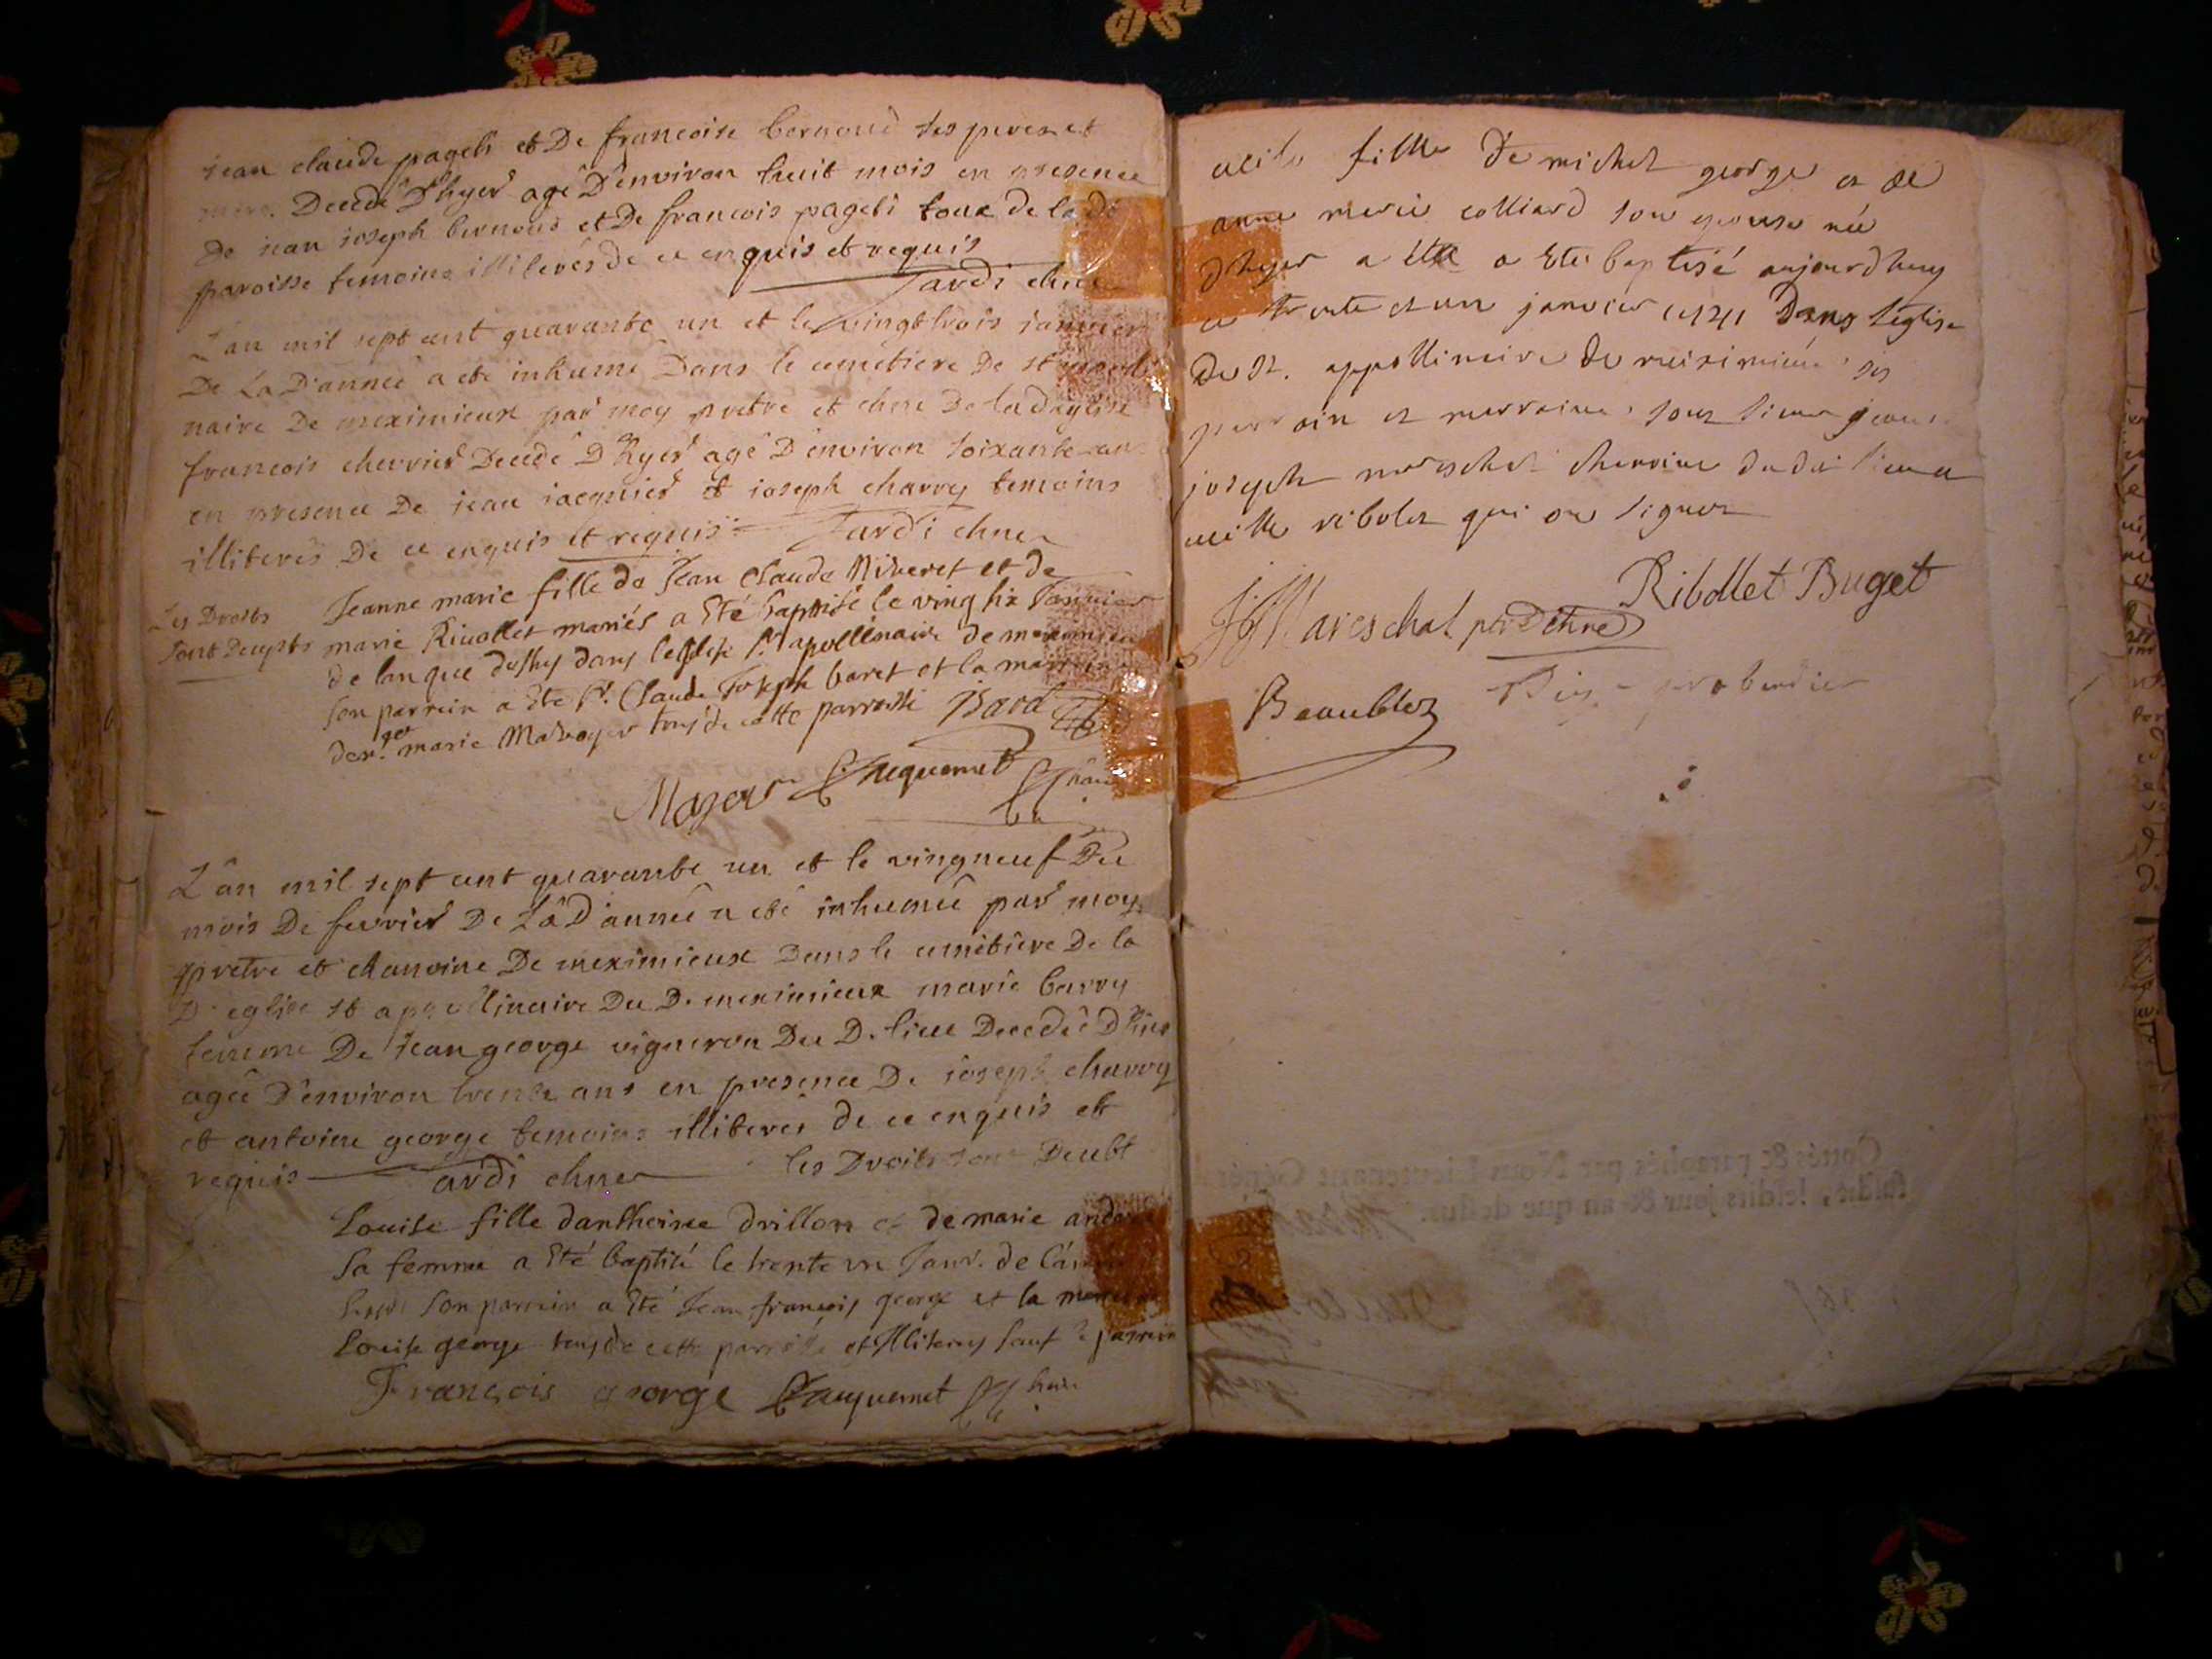 jean claude pageli et De francoise bernoud ses peres et
mere. Decedé D'hyer agé D'environ huit mois en presence
de jean joseph bernoud et De francois pageli toux de la de
paroisse temoins illiterés de ce enquis et requis
Tardi chne
L'an mil sept cent quarante un et le vingt trois janvier
De La D. année a eté inhumé Dans le cemetiere De st
naire De meximieux par moy pretre et chne De la D. eglise
francois cherrier Decedé D'hyer agé D'environ soixante ans
en presence De jean jacquier et joseph charvy temoins
illiterés De ce enquis et requis Tardi chne
Jeanne marie fille de Jean Claude Niveret et de
Les Droits
sont Deupts marie Rivollet mariés a Eté baptisé le ving six Janvier
de lan que dessus dans leglise St. apollinaire de meximieux
son parrein a Eté Sr. Claude Joseph baret et la marreine
marie tous de cette parroisse Bard
Mager Jacquemet
L'an mil sept cent quarante un et le vingneuf Du
mois De fevrier De La D. année a eté inhumée par moy
pretre et chanoine De meximieux Dans le cemetiere De la
D. eglise st appollinaire Du D. meximieux marie barry
femme De jean george vigneron Du D. lieu Decedée D'hier
agée D'environ trente ans en presence De joseph charvy
et antoine george temoins illiterés de ce enquis et
requis Tardi chne les Droits sont Deubt
Louise fille dantheine drillon et de marie
sa femme a Eté baptisé le trente un Janv. de
son parrein a Eté Jean françois george et la marreine
Louise george tous de cette parroisse et Illiterés sauf le parrein
François george Jacquemet
fille De michel george et de
anne marie colliard son epouse née
D'hyer a a Eté baptisé aujourdhuy
ce trente et un janvier 1741 Dans l'église
de St. appollinaire de meximieux ses
parrain et marraine sont sieur jean
joseph mareschal chanoine dudit lieu et
ribolet qui ont signez
Ribollet Buget
JJ Mareschal ptr et chne
Beaublez
Cottés & paraphés par Nous Lieutenant Génér
susdit, lesdits jour & an que dessus.